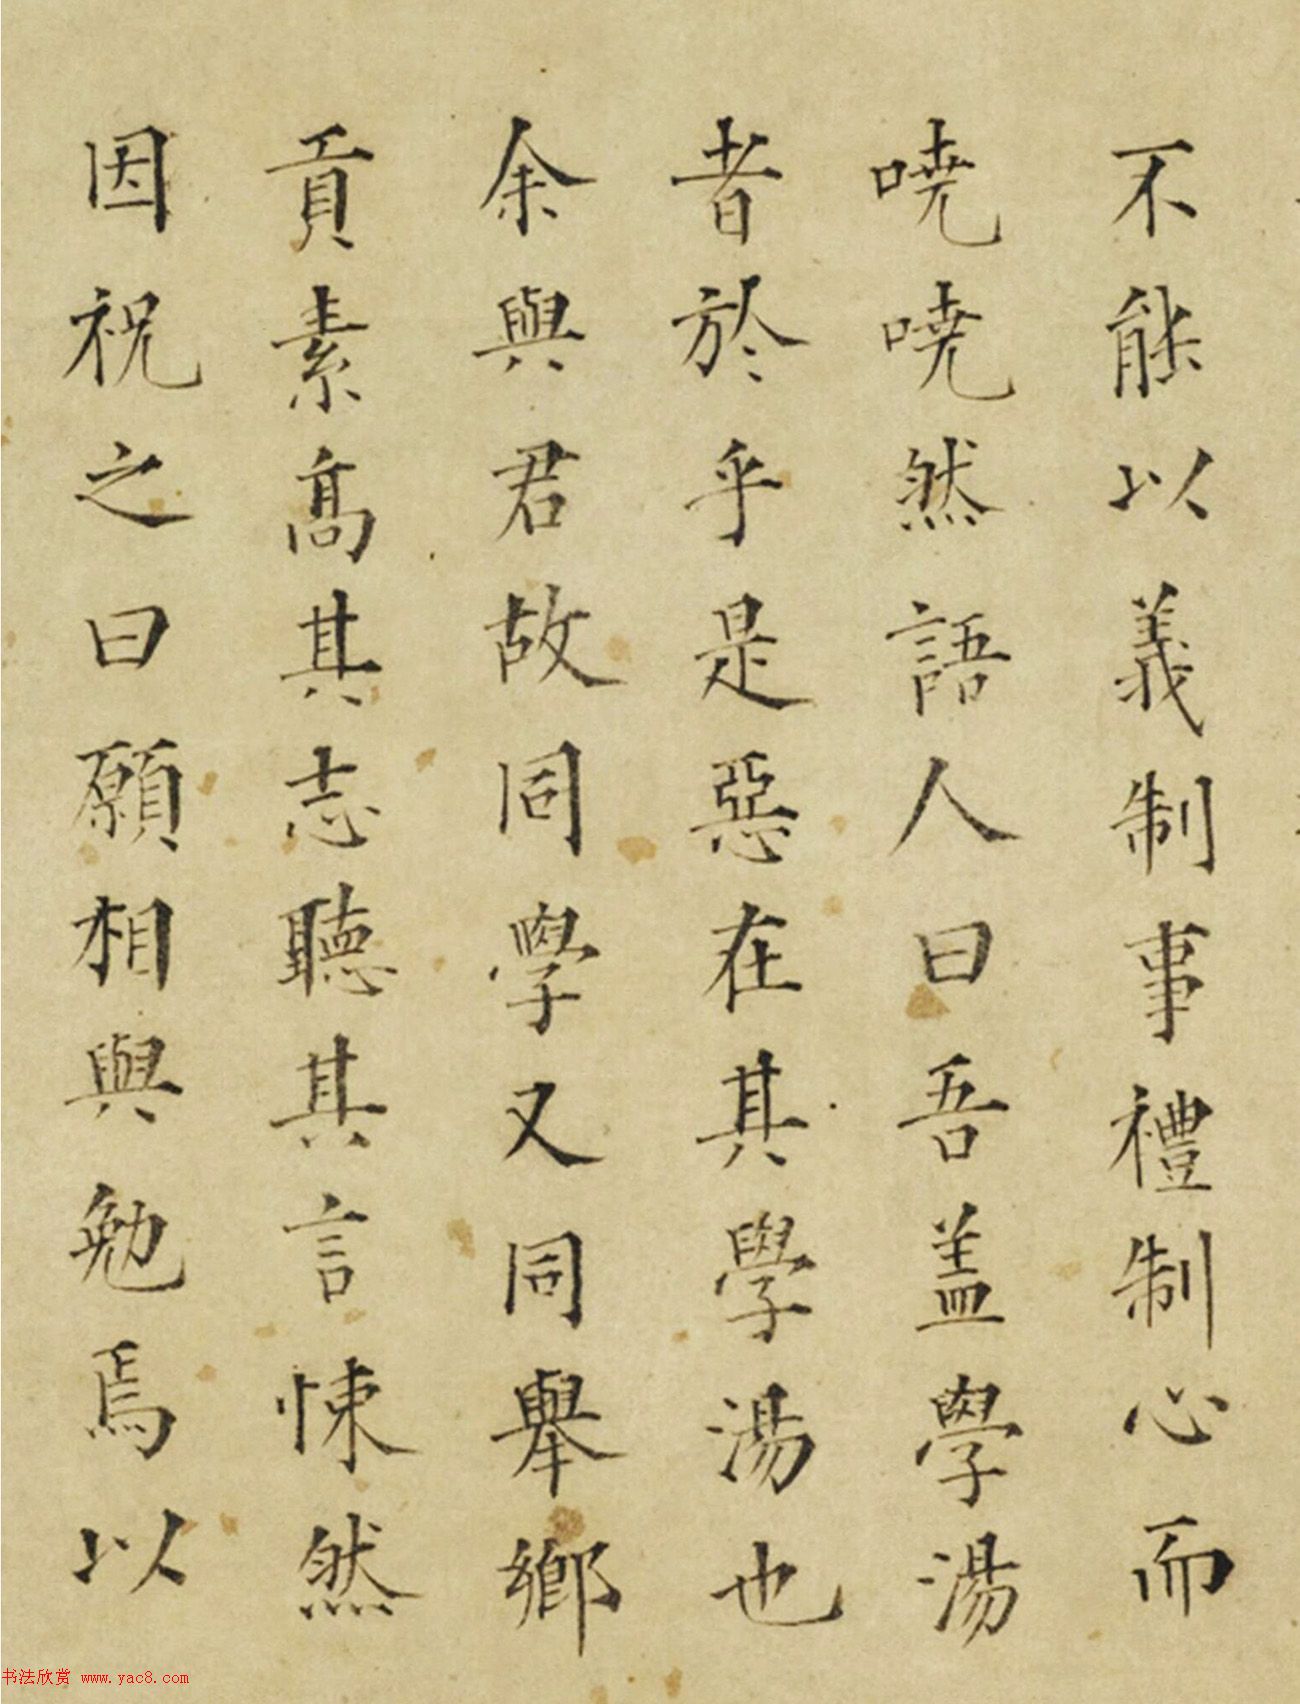 不能以義制事禮制心而
嘵嘵然語人曰吾盖學湯
者於乎是惡在其學湯也
余與君故同學又同舉鄉
貢素高其志聽其言悚然
因祝之曰願相與勉焉以
书法欣赏 www.yac8.com